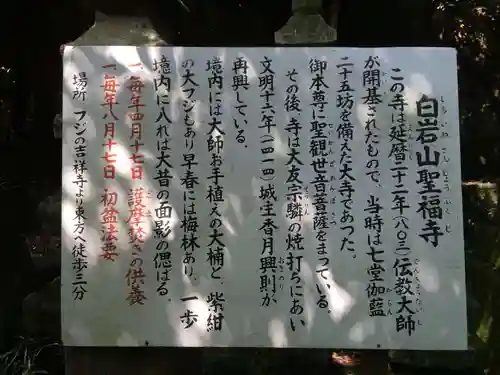 白岩山聖福寺
この寺は延暦二十二年(八〇三)伝教大師
が開基されたもので、当時は七堂伽藍
二十五坊を備えた大寺であった。
御本尊に聖観世音菩薩をまっている。
その後、寺は大友宗麟の焼打ちにあい
文明十六年(一四一四)城主香月興則が
再興している。
境内には大師お手植えの大楠と、紫紺
の大フジもあり早春には梅林あり。一歩
境内に入れば大昔の面影の偲ばる。
一、毎年四月十七日 護摩焚きの供養
一、毎年八月十七日 初盆法要
場所 フジの吉祥寺より東方へ徒歩三分